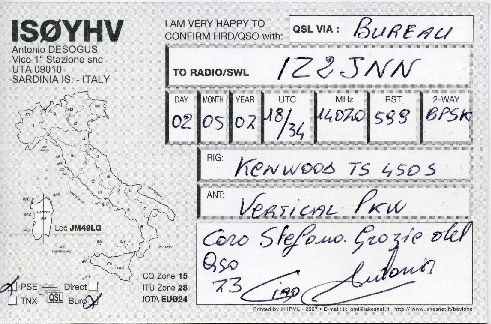 ISØYHV
Antonio DESOGUS
Vico 1° Stazione snc
UTA 09010
SARDINIA IS. - ITALY
I AM VERY HAPPY TO
CONFIRM HRD/QSO with:
QSL VIA : BUREAU
TO RADIO/SWL IZ2JNN
DAY MONTH YEAR UTC MHz RST 2-WAY
02 05 07 18/34 14070 599 BPSK
RIG: KENWOOD TS 450S
ANT: VERTICAL PKW
Caro Stefano. Grazie del
QSO
73 Ciao Antonio
Loc JM49LG
CQ Zone 15
ITU Zone 28
IOTA EU024
PSE Direct
TNX QSL Bureau
Printed by